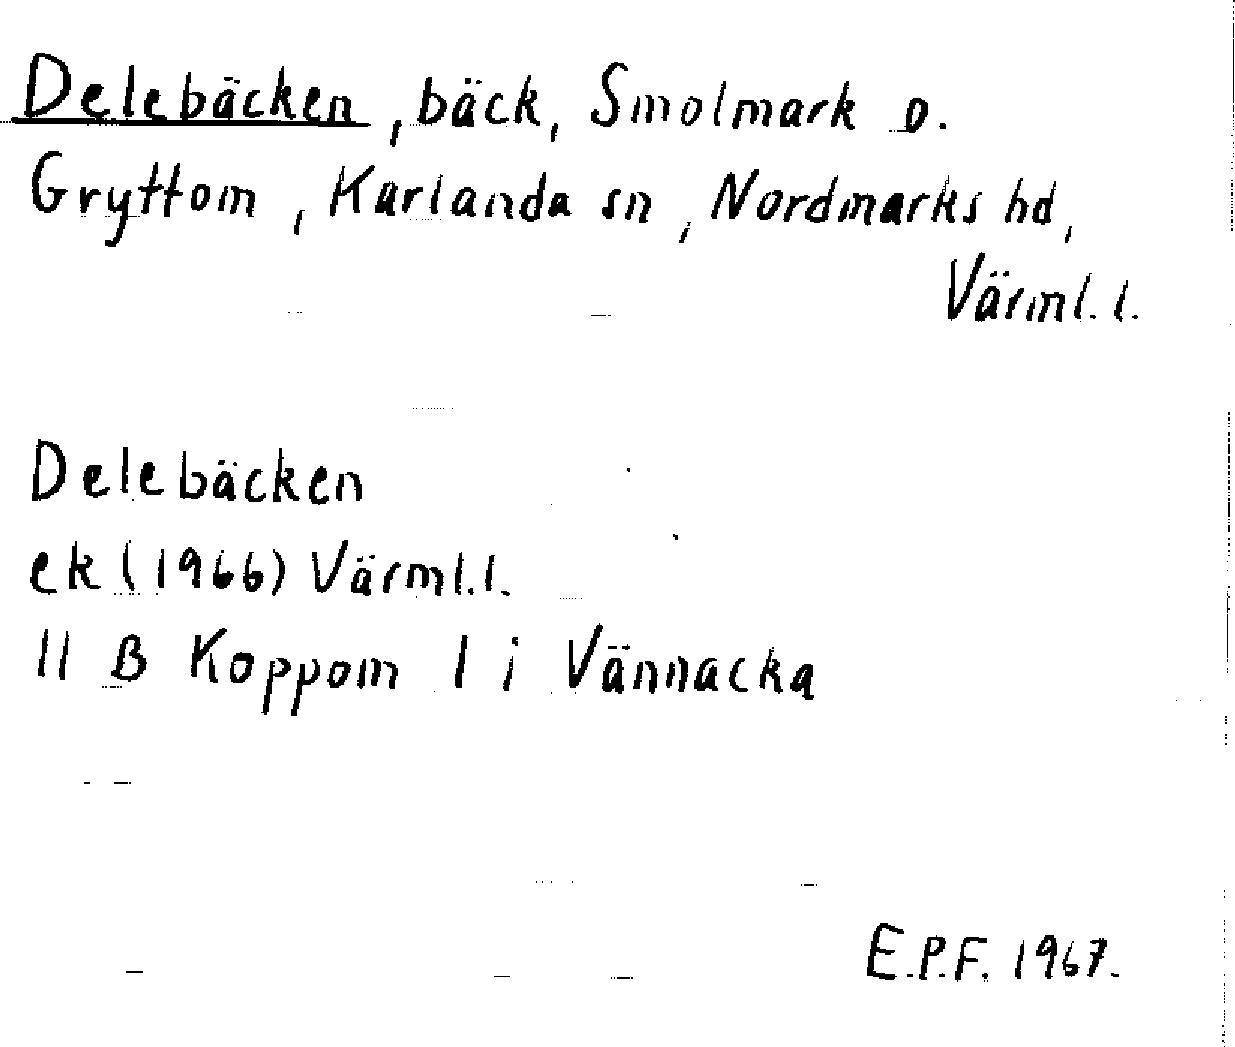 Delebäcken, bäck, Smolmark o.
Gryttom, Karlanda sn, Nordmarks hd,
Värml. l.
Delebäcken
ek (1966) Värml. l.
11 B Koppom 1 i Vännacka
E.P.F. 1967.